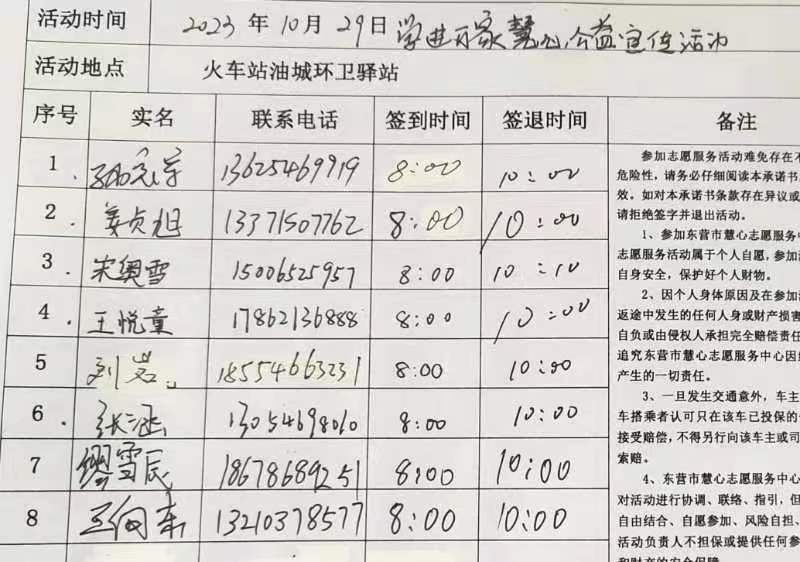 活动时间 2023年10月29日 学进万家慧心公益宣传活动
活动地点 火车站油城环卫驿站
序号 实名 联系电话 签到时间 签退时间 备注
1. 13625469919 8:00 10:00
2. 姜贞旭 13371507762 8:00 10:00
3. 宋奥雪 15006525957 8:00 10:10
4. 王悦童 17862136888 8:00 10:00
5 刘岩 18554663231 8:00 10:00
6. 张涵 13054698010 8:00 10:00
7 缪雪辰 18678689251 8:00 10:00
8 王向东 13210378577 8:00 10:00
参加志愿服务活动难免存在不
危险性，请务必仔细阅读本承诺书
效。如对本承诺书条款存在异议或
请拒绝签字并退出活动。
1、参加东营市慧心志愿服务中
志愿服务活动属于个人自愿，参加
自身安全，保护好个人财物。
2、因个人身体原因及在参加
返途中发生的任何人身或财产损害
自负或由侵权人承担完全赔偿责任
追究东营市慧心志愿服务中心因
产生的一切责任。
3、一旦发生交通意外，车主
车搭乘者认可只在该车已投保的
接受赔偿，不得另行向该车主或司
索赔。
4、东营市慧心志愿服务中心
对活动进行协调、联络、指引，但
自由结合、自愿参加、风险自担、
活动负责人不担保或提供任何参
和财产的安全保障